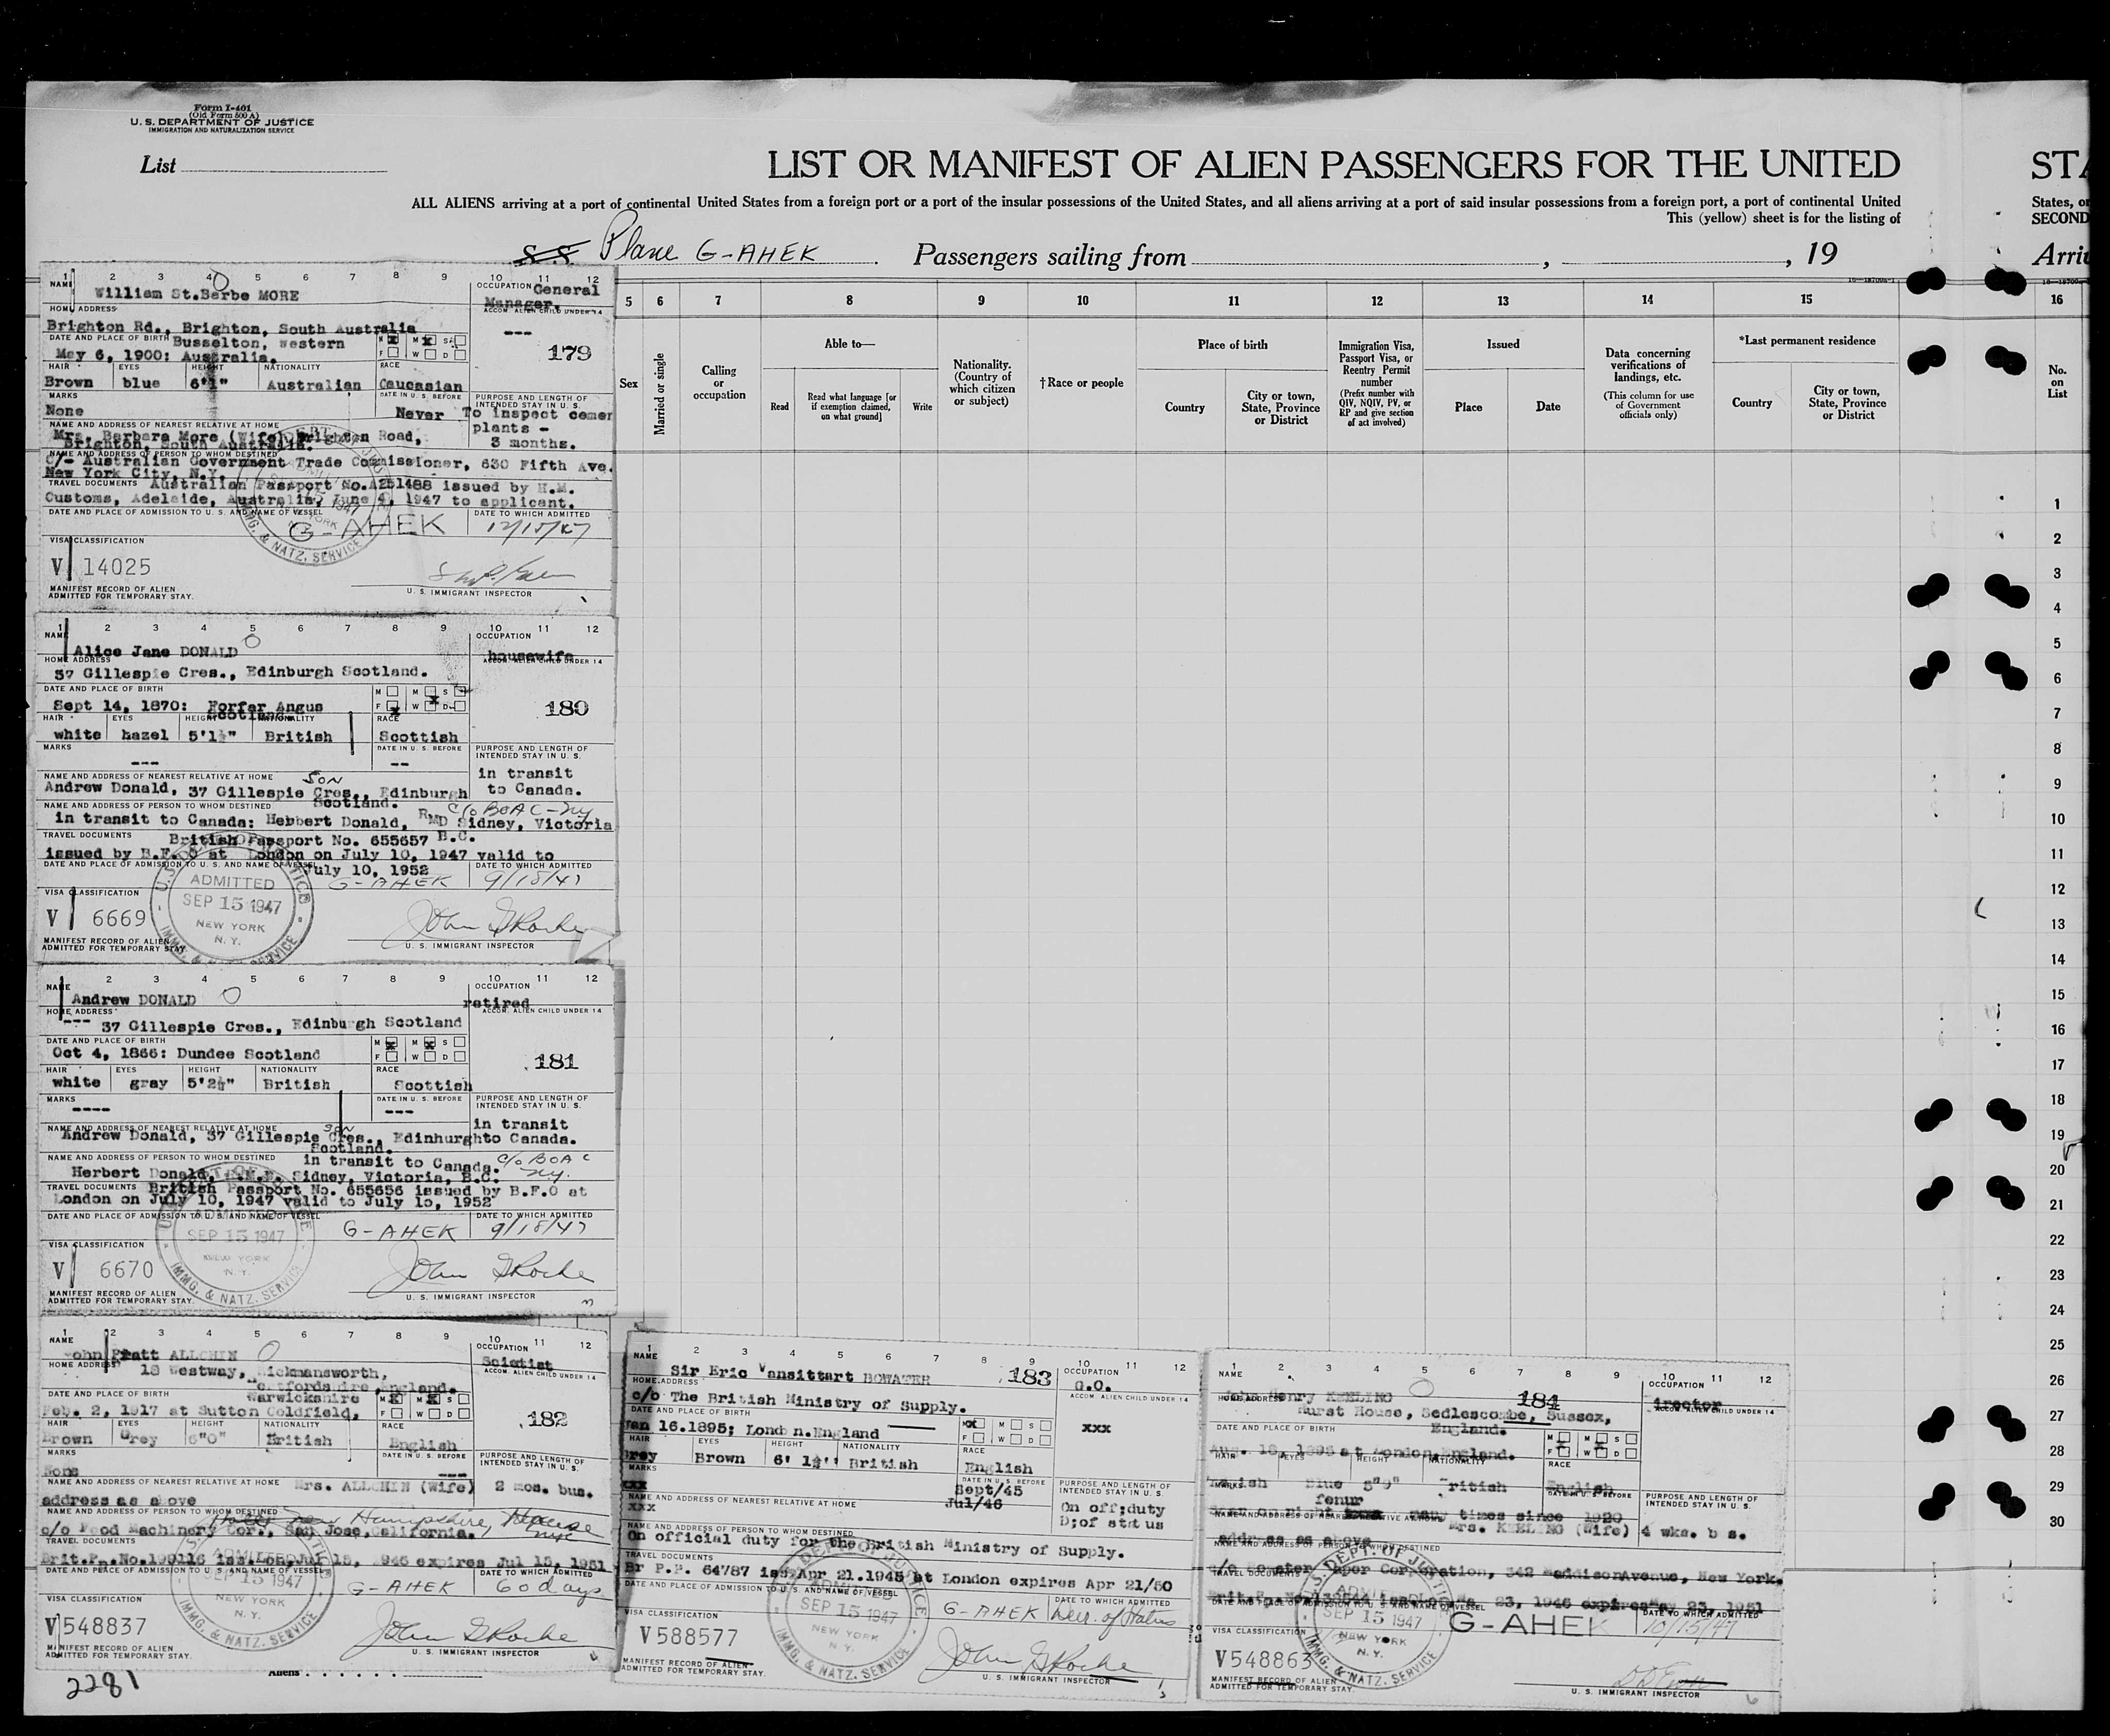 Form I-401
(Old Form 500 A)
U. S. DEPARTMENT OF JUSTICE
IMMIGRATION AND NATURALIZATION SERVICE
List
LIST OR MANIFEST OF ALIEN PASSENGERS FOR THE UNITED
STA
ALL ALIENS arriving at a port of continental United States from a foreign port or a port of the insular possessions of the United States, and all aliens arriving at a port of said insular possessions from a foreign port, a port of continental United
States, or
This (yellow) sheet is for the listing of
SECOND
S. S. Plane G-AHEK Passengers sailing from , , 19
Arri
5 6 7 8 9 10 11 12 13 14 15 16
Sex
Married or single
Calling or occupation
Able to—
Read
Read what language [or if exemption claimed, on what ground]
Write
Nationality. (Country of which citizen or subject)
†Race or people
Place of birth
Country
City or town, State, Province or District
Immigration Visa, Passport Visa, or Reentry Permit number
(Prefix number with QIV, NQIV, PV, or RP and give section of act involved)
Issued
Place
Date
Data concerning verifications of landings, etc.
(This column for use of Government officials only)
*Last permanent residence
Country
City or town, State, Province or District
No. on List
1
2
3
4
5
6
7
8
9
10
11
12
13
14
15
16
17
18
19
20
21
22
23
24
25
26
27
28
29
30
1 2 3 4 5 6 7 8 9 10 11 12
NAME
William St.Berbe MORE
OCCUPATION General
Manager.
HOME ADDRESS
ACCOM. ALIEN CHILD UNDER 14
Brighton Rd., Brighton, South Australia
---
DATE AND PLACE OF BIRTH Busselton, Western
M X M X S
May 6, 1900: Australia.
F W D
179
HAIR EYES HEIGHT NATIONALITY RACE
Brown blue 6'1" Australian Caucasian
MARKS
DATE IN U. S. BEFORE
PURPOSE AND LENGTH OF INTENDED STAY IN U. S.
None
Never
To inspect cemen
plants -
3 months.
NAME AND ADDRESS OF NEAREST RELATIVE AT HOME
Mrs. Barbara More (Wife) Brighton Road,
Brighton, South Australia.
NAME AND ADDRESS OF PERSON TO WHOM DESTINED
C/- Australian Government Trade Commissioner, 630 Fifth Ave.
New York City, N.Y.
TRAVEL DOCUMENTS Australian Passport No.A251488 issued by H.M.
Customs, Adelaide, Australia, June 4, 1947 to applicant.
DATE AND PLACE OF ADMISSION TO U. S. AND NAME OF VESSEL
DATE TO WHICH ADMITTED
G-AHEK
12/15/47
VISA CLASSIFICATION
V 14025
MANIFEST RECORD OF ALIEN
ADMITTED FOR TEMPORARY STAY.
U. S. IMMIGRANT INSPECTOR
IMMG. & NATZ. SERVICE
1 2 3 4 5 6 7 8 9 10 11 12
NAME
Alice Jane DONALD
OCCUPATION
housewife
HOME ADDRESS
ACCOM. ALIEN CHILD UNDER 14
37 Gillespie Cres., Edinburgh Scotland.
DATE AND PLACE OF BIRTH
M M S
Sept 14, 1870: Forfar Angus
F W D
Scotland
180
HAIR EYES HEIGHT NATIONALITY RACE
white hazel 5'1½" British Scottish
MARKS
DATE IN U. S. BEFORE
PURPOSE AND LENGTH OF INTENDED STAY IN U. S.
---
--
in transit
to Canada.
NAME AND ADDRESS OF NEAREST RELATIVE AT HOME
SON
Andrew Donald, 37 Gillespie Cres., Edinburgh
Scotland.
NAME AND ADDRESS OF PERSON TO WHOM DESTINED
C/o BOAC-NY
in transit to Canada: Herbert Donald, RMD Sidney, Victoria
B.C.
TRAVEL DOCUMENTS
British Passport No. 655657
issued by B.F.O at London on July 10, 1947 valid to
July 10, 1952
DATE AND PLACE OF ADMISSION TO U. S. AND NAME OF VESSEL
DATE TO WHICH ADMITTED
G-AHEK
9/18/47
VISA CLASSIFICATION
V 6669
ADMITTED
SEP 15 1947
NEW YORK
N. Y.
John G Roche
MANIFEST RECORD OF ALIEN
ADMITTED FOR TEMPORARY STAY
U. S. IMMIGRANT INSPECTOR
2 3 4 5 6 7 8 9 10 11 12
NAME
Andrew DONALD
OCCUPATION
retired
HOME ADDRESS
ACCOM. ALIEN CHILD UNDER 14
--- 37 Gillespie Cres., Edinburgh Scotland
DATE AND PLACE OF BIRTH
M X M X S
Oct 4, 1866: Dundee Scotland
F W D
181
HAIR EYES HEIGHT NATIONALITY RACE
white gray 5'2½" British Scottish
MARKS
DATE IN U. S. BEFORE
PURPOSE AND LENGTH OF INTENDED STAY IN U. S.
----
---
in transit
to Canada.
NAME AND ADDRESS OF NEAREST RELATIVE AT HOME
son
Andrew Donald, 37 Gillespie Cres., Edinhurgh
Scotland.
NAME AND ADDRESS OF PERSON TO WHOM DESTINED
in transit to Canada. C/o BOAC
NY.
Herbert Donald, R.M.D. Sidney, Victoria, B.C.
TRAVEL DOCUMENTS British Passport No. 655656 issued by B.F.O at
London on July 10, 1947 valid to July 10, 1952
DATE AND PLACE OF ADMISSION TO U. S. AND NAME OF VESSEL
DATE TO WHICH ADMITTED
G-AHEK
9/18/47
ADMITTED
SEP 15 1947
NEW YORK
N. Y.
IMMG. & NATZ. SERVICE
VISA CLASSIFICATION
V 6670
John G Roche
MANIFEST RECORD OF ALIEN
ADMITTED FOR TEMPORARY STAY.
U. S. IMMIGRANT INSPECTOR
1 2 3 4 5 6 7 8 9 10 11 12
NAME
John Pratt ALLCHIN
OCCUPATION
Scietist
HOME ADDRESS
ACCOM. ALIEN CHILD UNDER 14
18 Westway, Rickmansworth,
Hertfordshire, England.
DATE AND PLACE OF BIRTH Warwickshire
M X M X S
Feb. 2, 1917 at Sutton Coldfield,
F W D
182
HAIR EYES HEIGHT NATIONALITY RACE
Brown Grey 6"0" British English
MARKS
DATE IN U. S. BEFORE
PURPOSE AND LENGTH OF INTENDED STAY IN U. S.
None
---
NAME AND ADDRESS OF NEAREST RELATIVE AT HOME Mrs. ALLCHIN (Wife)
2 mos. bus.
address as above
NAME AND ADDRESS OF PERSON TO WHOM DESTINED
Hotel New Hampshire, NYC
c/o Food Machinery Cor., San Jose, California.
TRAVEL DOCUMENTS
Brit.P. No.199116 iss. Lon,Jul 15, 1946 expires Jul 15, 1951
DATE AND PLACE OF ADMISSION TO U. S. AND NAME OF VESSEL
DATE TO WHICH ADMITTED
G-AHEK
60 days
ADMITTED
SEP 15 1947
NEW YORK
N. Y.
IMMG. & NATZ. SERVICE
VISA CLASSIFICATION
V 548837
John G Roche
MANIFEST RECORD OF ALIEN
ADMITTED FOR TEMPORARY STAY.
U. S. IMMIGRANT INSPECTOR
Aliens
2281
1 2 3 4 5 6 7 8 9 10 11 12
NAME
Sir Eric Vansittart BOWATER
183
OCCUPATION
G.O.
HOME ADDRESS
ACCOM. ALIEN CHILD UNDER 14
c/o The British Ministry of Supply.
DATE AND PLACE OF BIRTH
M M S
Jan 16.1895; Lond n.England
F W D
xxx
HAIR EYES HEIGHT NATIONALITY RACE
Grey Brown 6' 1½'' British English
MARKS
DATE IN U. S. BEFORE
PURPOSE AND LENGTH OF INTENDED STAY IN U. S.
xxx
Sept/45
Jul/46
NAME AND ADDRESS OF NEAREST RELATIVE AT HOME
xxx
On off;duty
D;of status
NAME AND ADDRESS OF PERSON TO WHOM DESTINED
On official duty for the British Ministry of Supply.
TRAVEL DOCUMENTS
Br P.P. 64787 iss Apr 21.1945 at London expires Apr 21/50
DATE AND PLACE OF ADMISSION TO U. S. AND NAME OF VESSEL
DATE TO WHICH ADMITTED
G-AHEK
Dur. of Status
ADMITTED
SEP 15 1947
NEW YORK
N. Y.
IMMG. & NATZ. SERVICE
VISA CLASSIFICATION
V 588577
John G Roche
MANIFEST RECORD OF ALIEN
ADMITTED FOR TEMPORARY STAY.
U. S. IMMIGRANT INSPECTOR
1 2 3 4 5 6 7 8 9 10 11 12
NAME
John Henry KEELING
184
OCCUPATION
irector
HOME ADDRESS
ACCOM. ALIEN CHILD UNDER 14
Hurst House, Sedlescombe, Sussex,
England.
DATE AND PLACE OF BIRTH
M M S
Aug. 18, 1895 at London, England.
F W D
HAIR EYES HEIGHT NATIONALITY RACE
Blue 5"9" British English
MARKS
DATE IN U. S. BEFORE
PURPOSE AND LENGTH OF INTENDED STAY IN U. S.
Scar on right femur many times since 1920
NAME AND ADDRESS OF NEAREST RELATIVE AT HOME
Mrs. KEELING (Wife)
4 wks. b s.
address as above
NAME AND ADDRESS OF PERSON TO WHOM DESTINED
c/o Bowater Paper Corporation, 342 MaddisonAvenue, New York.
TRAVEL DOCUMENTS
23, 1946 expires May 23, 1951
DATE AND PLACE OF ADMISSION TO U. S. AND NAME OF VESSEL
DATE TO WHICH ADMITTED
G-AHEK
10/15/47
U.S. DEPT. OF JUSTICE
ADMITTED
SEP 15 1947
NEW YORK
N. Y.
IMMG. & NATZ. SERVICE
VISA CLASSIFICATION
V548863
MANIFEST RECORD OF ALIEN
ADMITTED FOR TEMPORARY STAY.
U. S. IMMIGRANT INSPECTOR